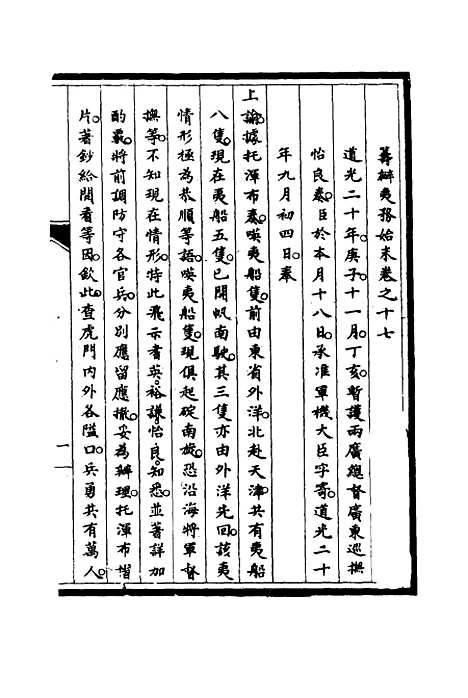 籌辦夷務始末卷之十七
道光二十年。庚子。十一月。丁亥。暫護兩廣總督廣東巡撫
怡良奏。臣於本月十八日。承准軍機大臣字寄。道光二十
年九月初四日。奉
上諭。據托渾布奏。暎夷船隻。前由東省外洋。北赴天津。共有夷船
八隻。現在夷船五隻。已開帆南駛。其三隻亦由外洋先回。該夷
情形極為恭順等語。暎夷船隻。現俱起碇南旋。恐沿海將軍督
撫等。不知現在情形。特此飛示耆英。裕謙。怡良。知悉。並著詳加
酌覈。將前調防守各官兵。分別應留應撤。妥為辦理。托渾布摺
片。著鈔給閱看等因。欽此。查虎門內外各隘口。兵勇共有萬人。
一